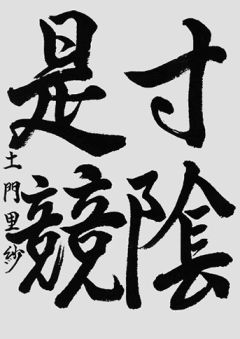 寸陰
是競
土門里紗